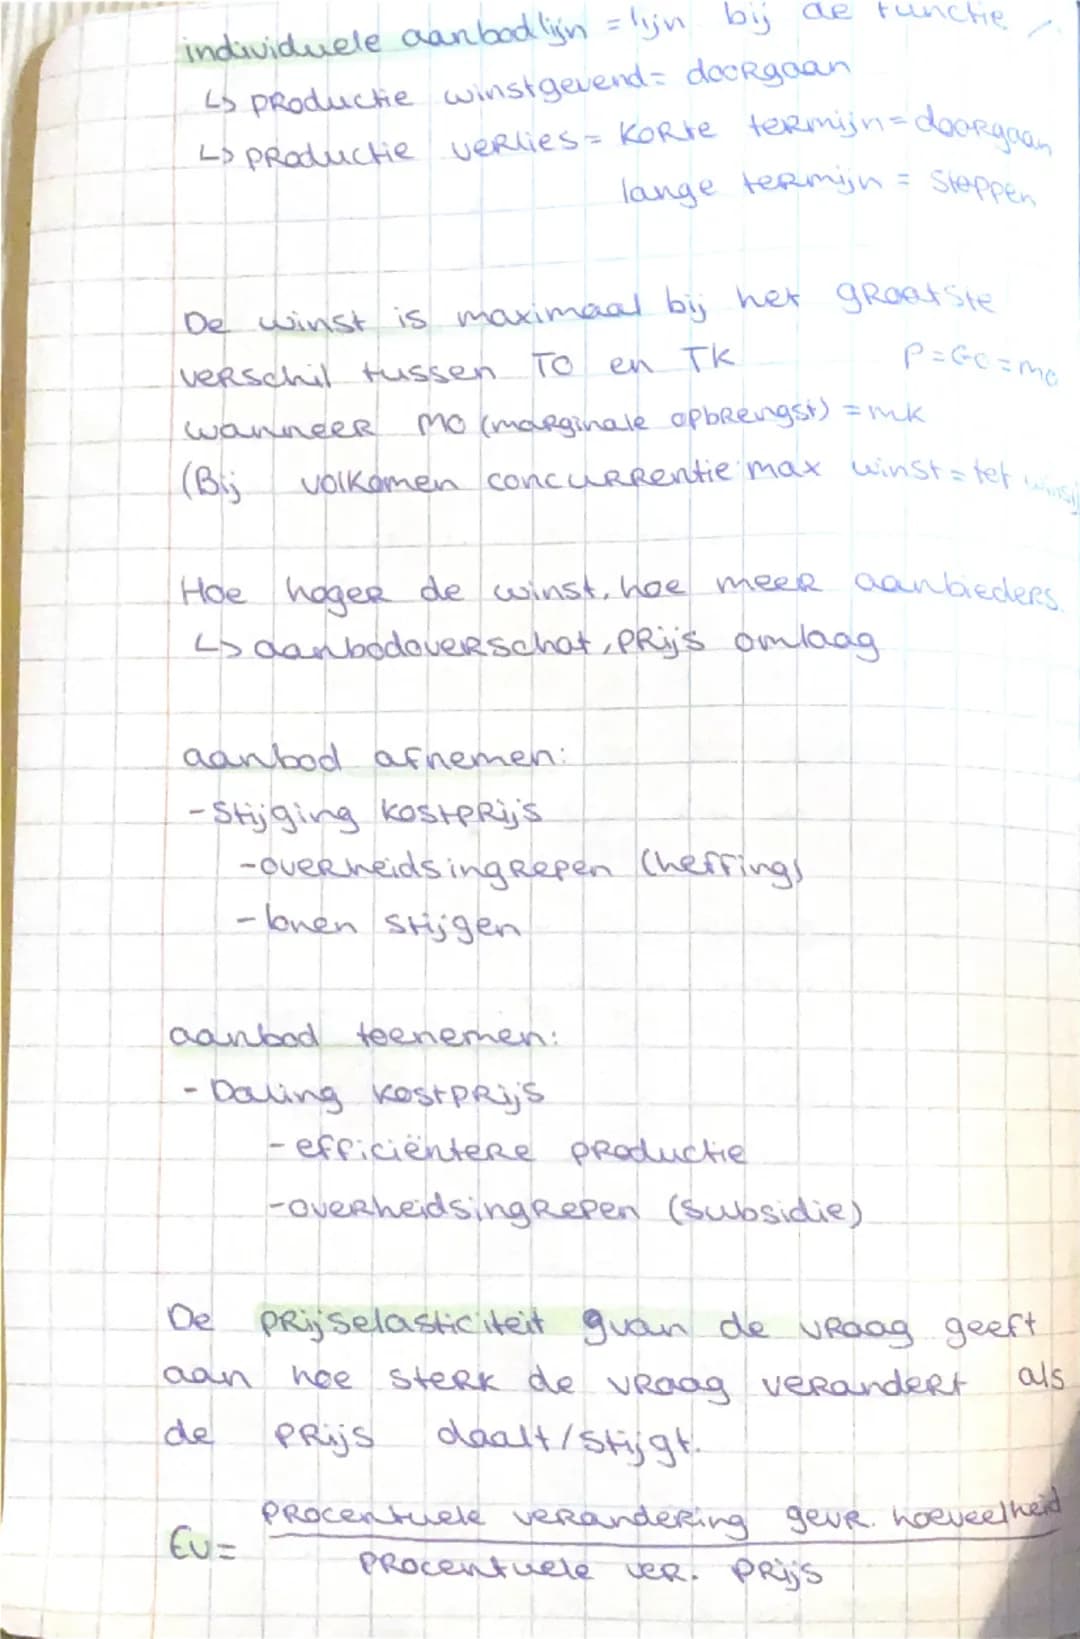 individuele aanbodlijn = lijn bij de functie
↳ productie winstgevend = doorgaan
↳ productie verlies = korte termijn = doorgaan
lange termijn = stoppen
De winst is maximaal bij het grootste
verschil tussen TO en TK P=GO=mo
wanneer MO (marginale opbrengst) = mk
(Bij volkomen concurrentie max winst = tot winst
Hoe hoger de winst, hoe meer aanbieders.
↳ aanbodoverschot, prijs omlaag
aanbod afnemen:
- Stijging kostprijs
- overheidsingrepen (heffing)
- lonen stijgen
aanbod toenemen:
- Daling kostprijs
- efficiëntere productie
- overheidsingrepen (subsidie)
De prijselasticiteit gvan de vraag geeft
aan hoe sterk de vraag verandert als
de prijs daalt/stijgt.
procentuele verandering gevr. hoeveelheid
Ev=
procentuele ver. prijs